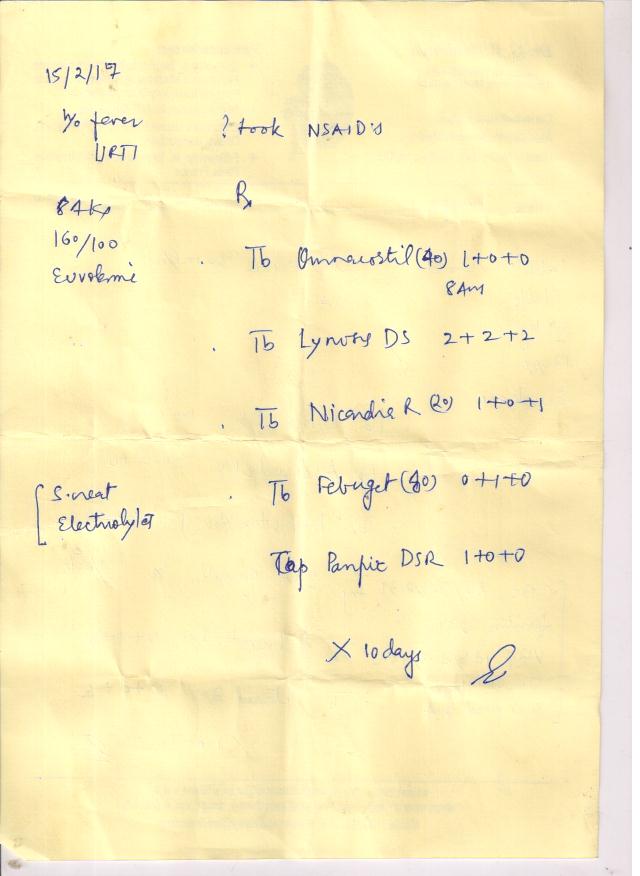 15/2/17
h/o fever ? took NSAID's
URTI
Rx
84Kg
160/100
Euvolemic
Tb Omnacortil (40) 1+0+0
8Am
Tb DS 2+2+2
Tb Nicardia R (20) 1+0+1
Tb Febuget (40) 0+1+0
[ S. creat
Electrolytes
Cap DSR 1+0+0
X 10 days